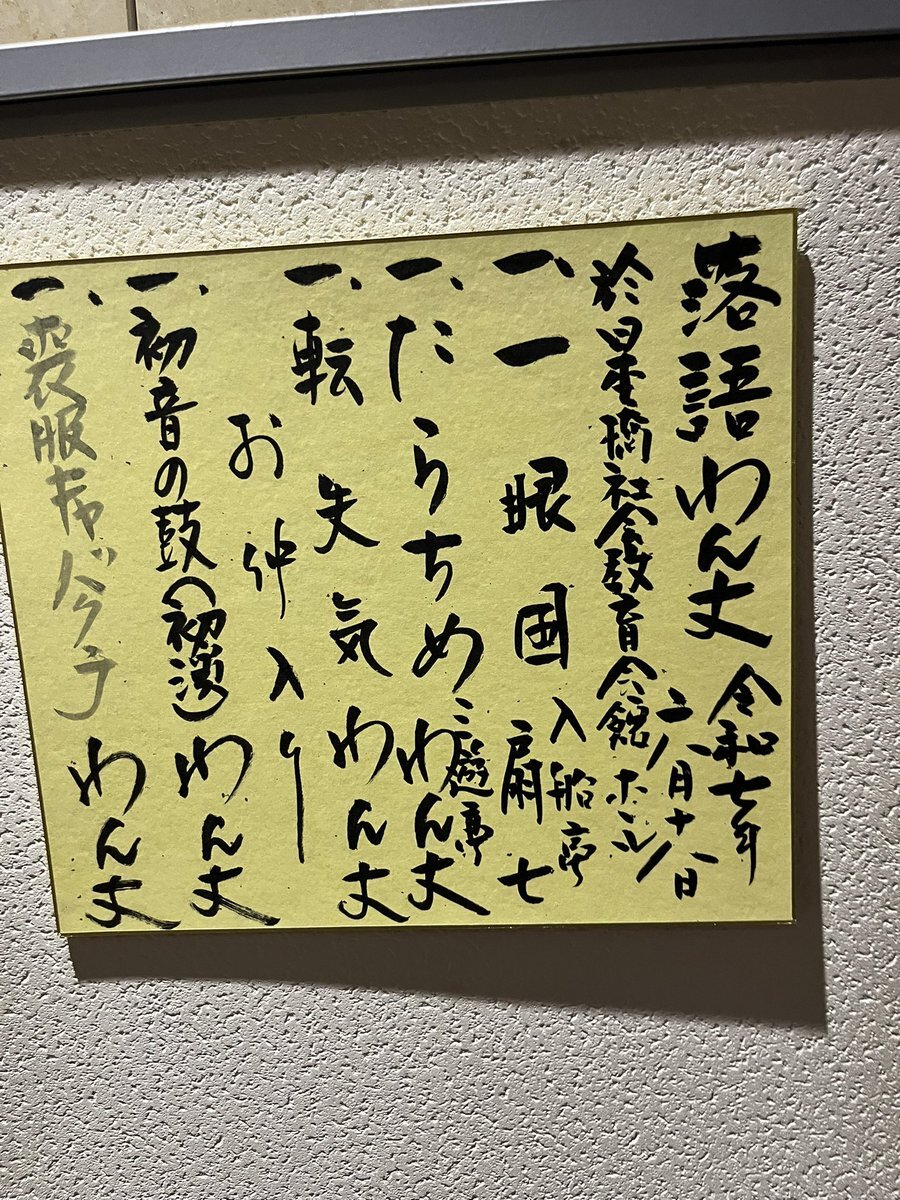 落語わん丈 令和七年
二月十八日
於 日本橋社会教育会館 ホール
一、一眼国 入船亭
扇七
一、たらちめ 三遊亭
わん丈
一、転失気 わん丈
お仲入り
一、初音の鼓(初演) わん丈
一、喪服キャバクラ わん丈